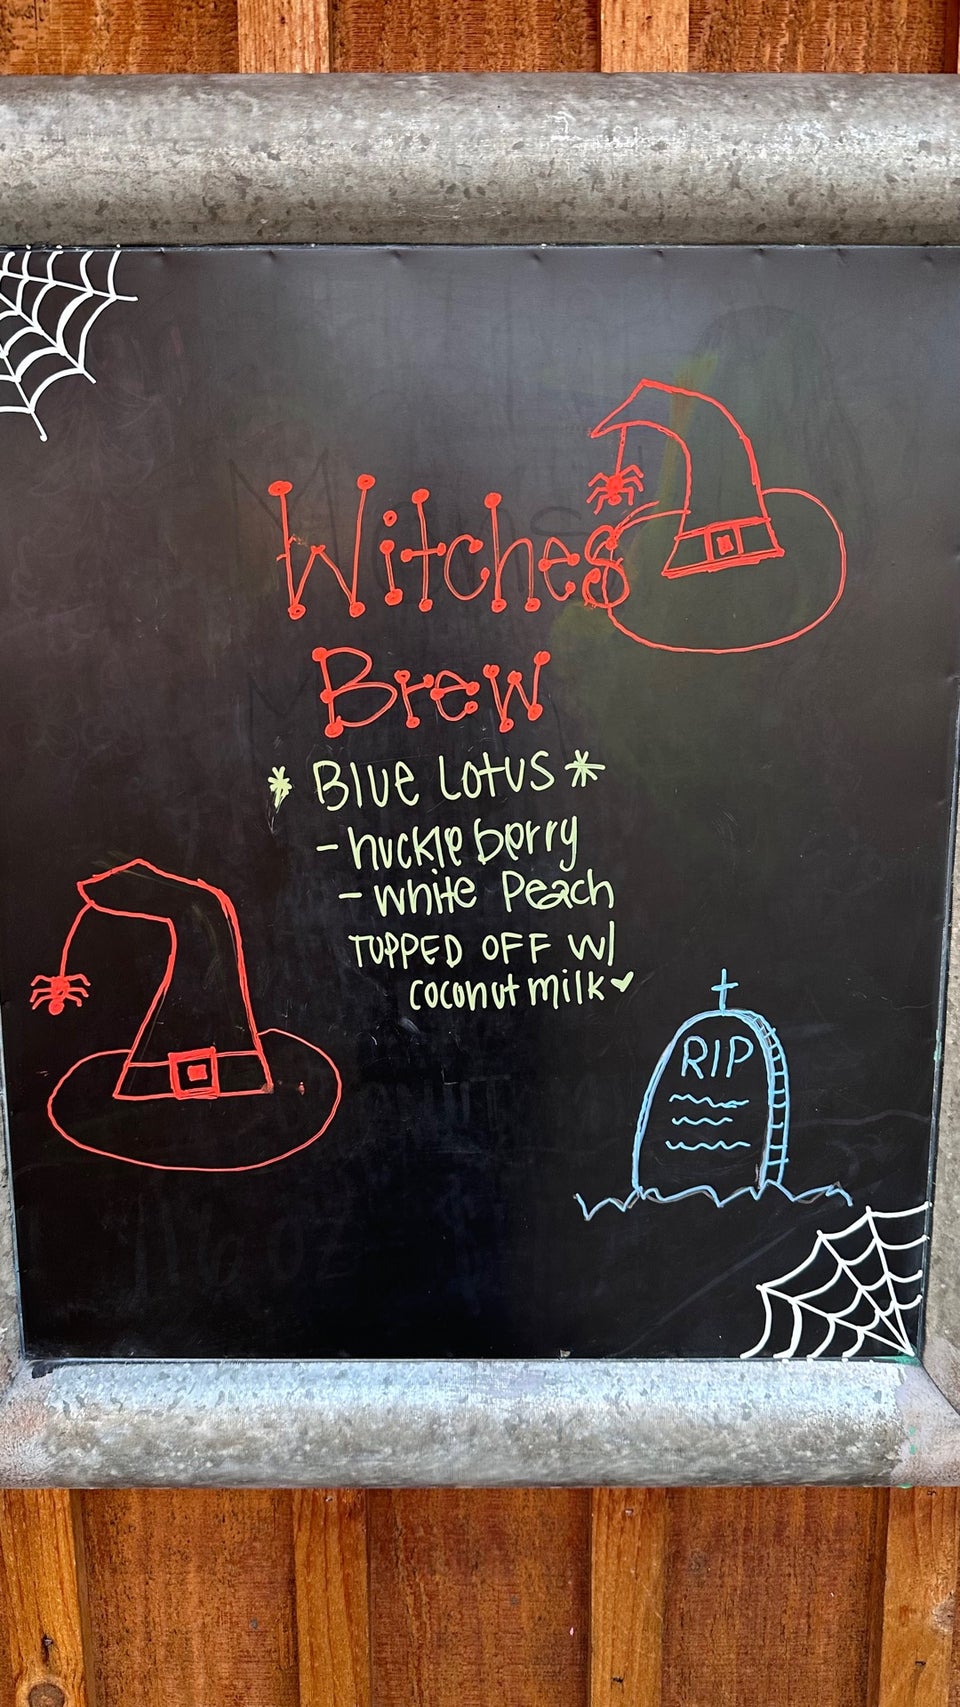 Witches
Brew
* Blue Lotus *
- huckleberry
- white Peach
TOPPED OFF W/
coconut milk
RIP